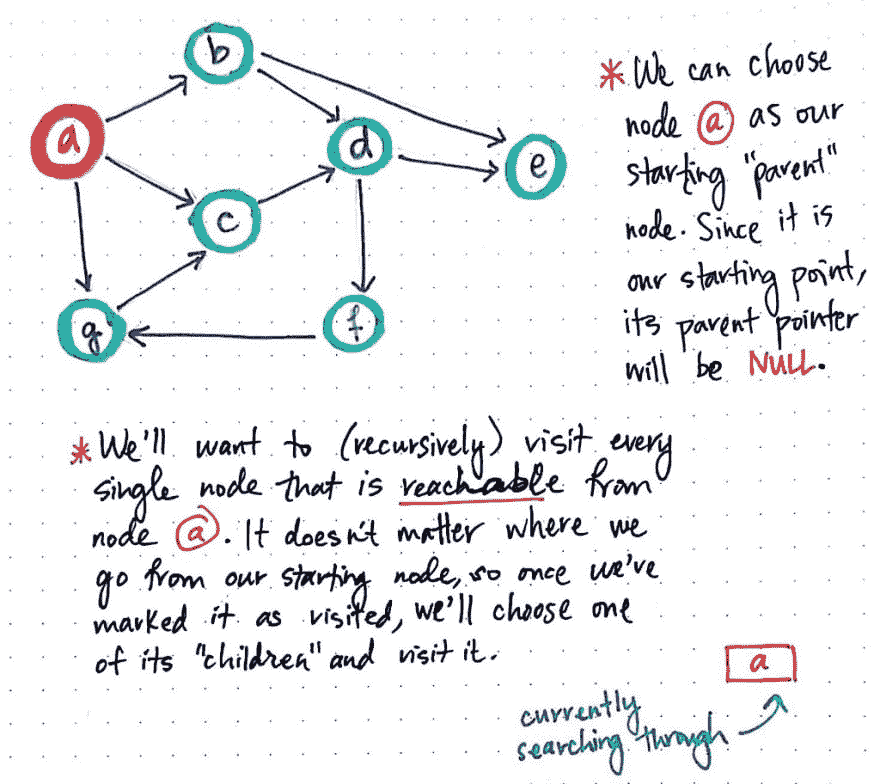 b
a
d
e
c
g
f
* We can choose
node ⓐ as our
starting "parent"
node. Since it is
our starting point,
its parent pointer
will be NULL.
* We'll want to (recursively) visit every
single node that is reachable from
node ⓐ. It doesn't matter where we
go from our starting node, so once we've
marked it as visited, we'll choose one
of its "children" and visit it.
a
currently
searching through